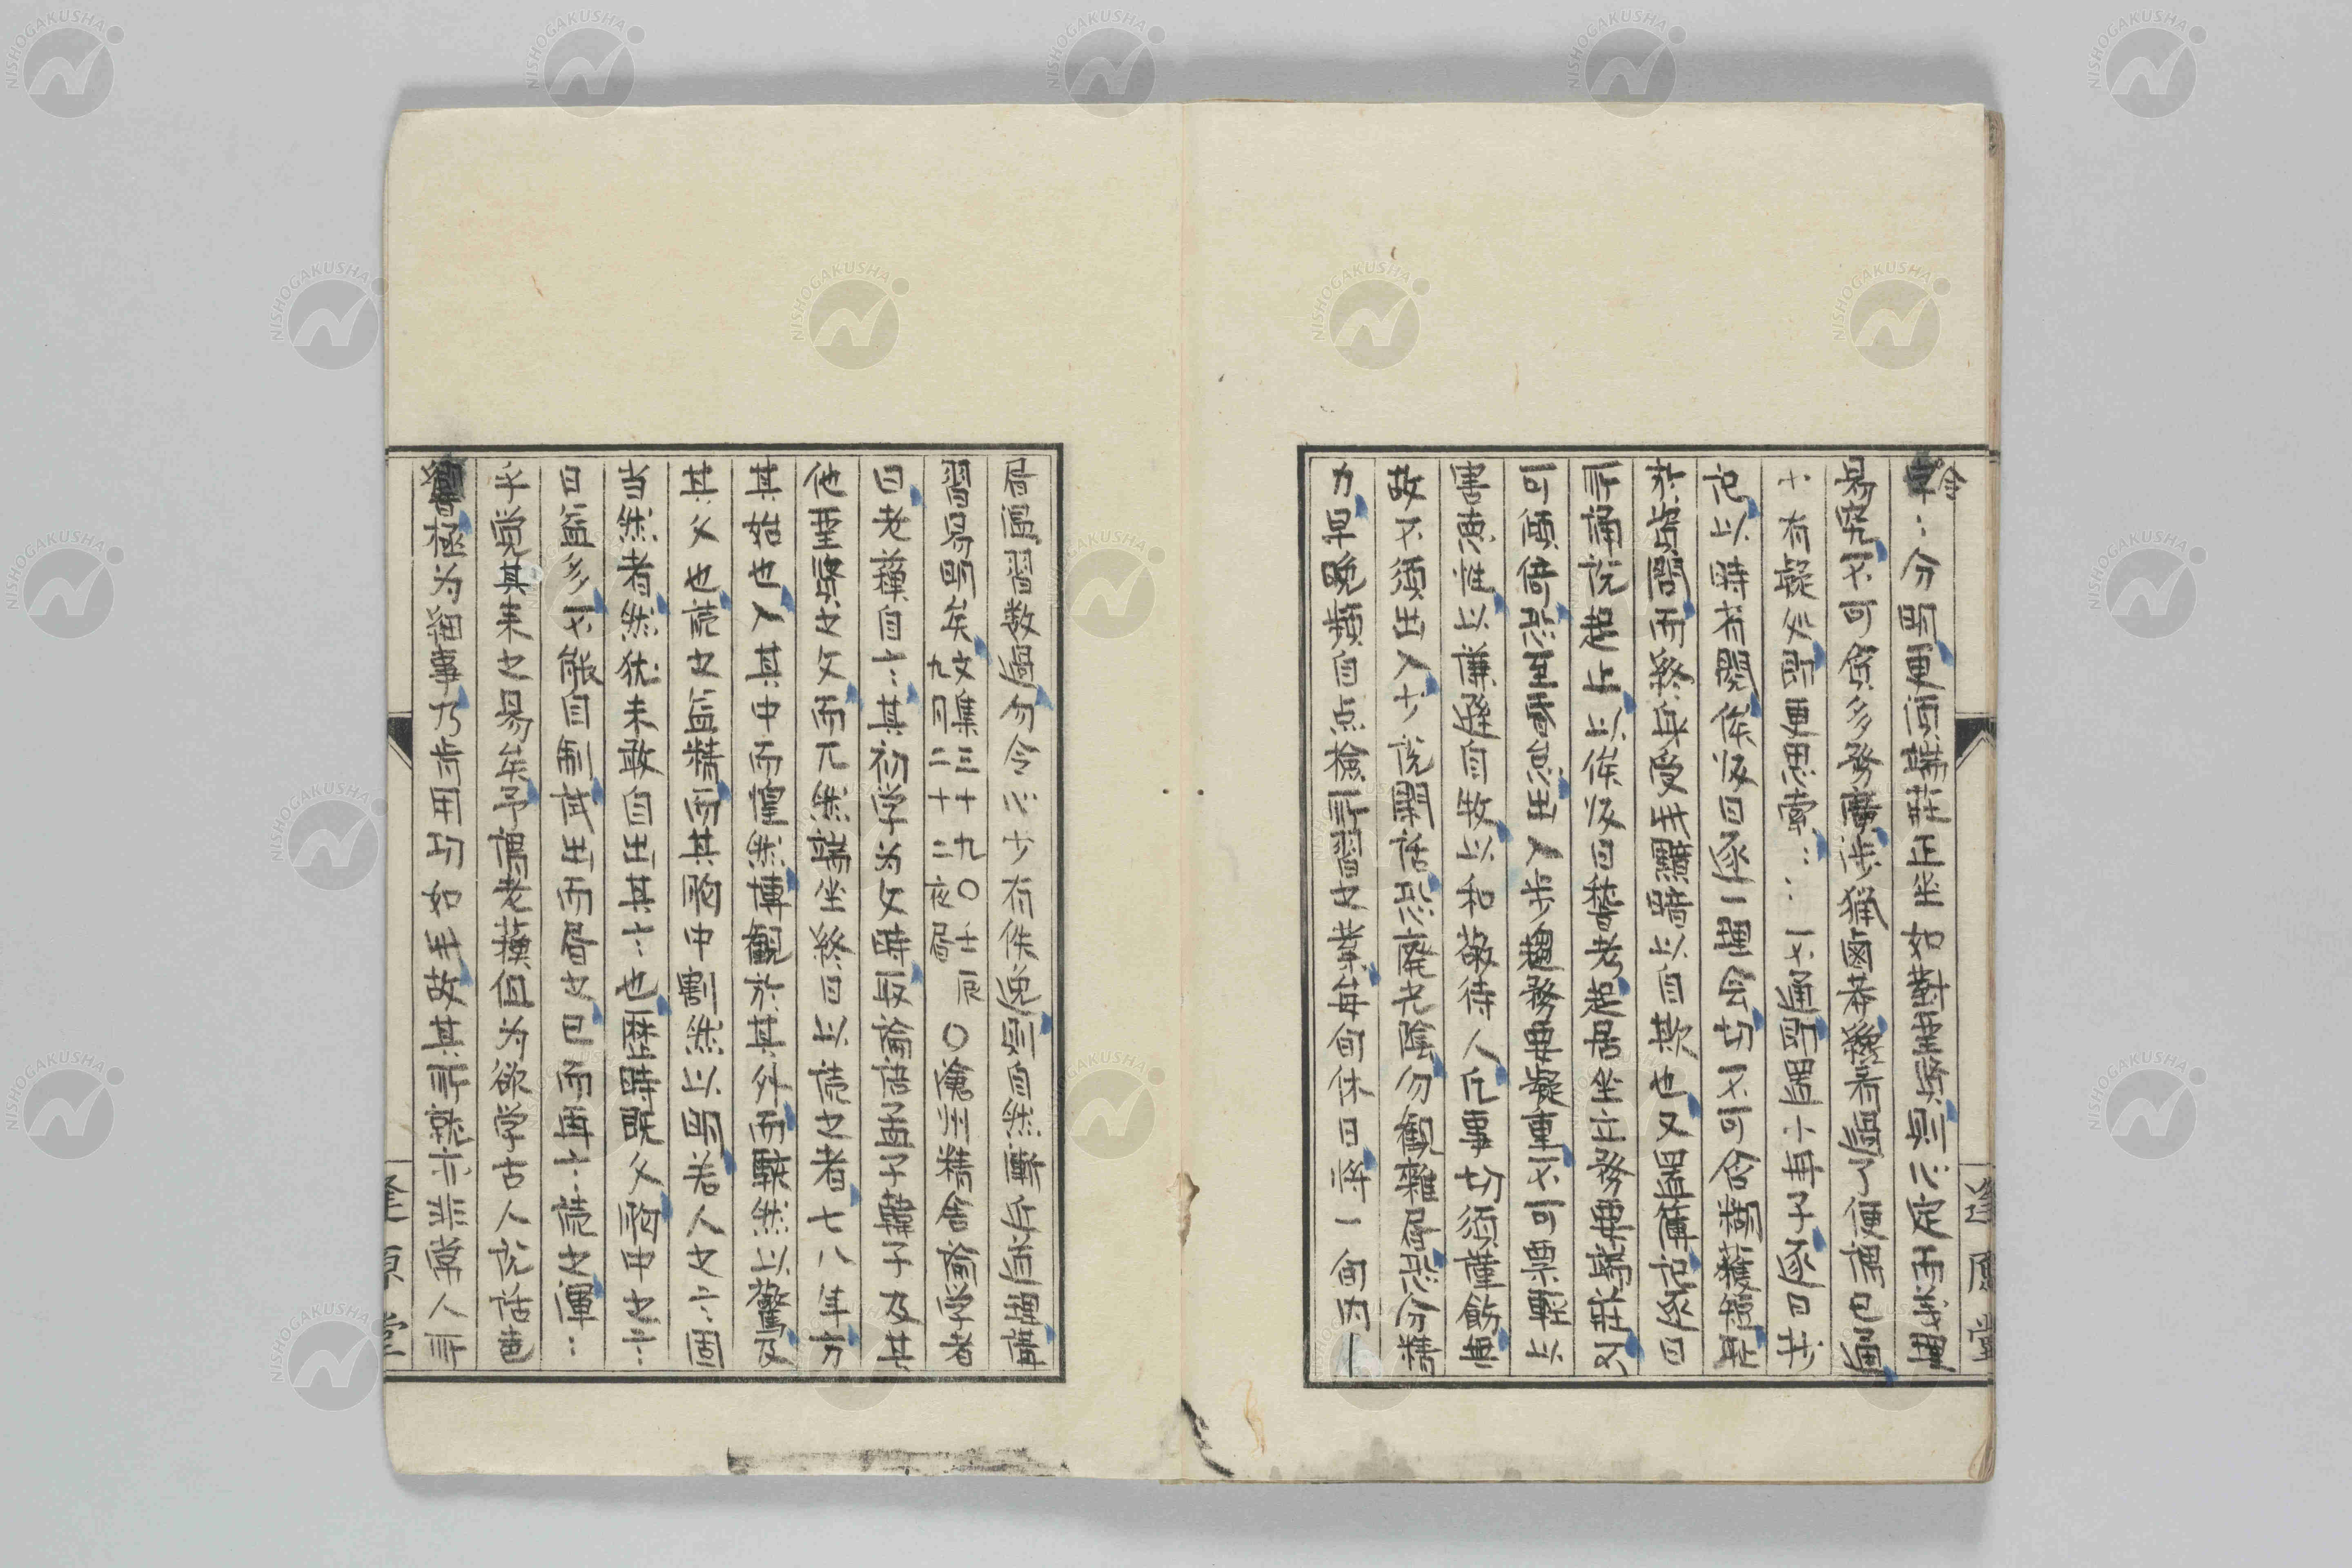 令
字〻分明更須端莊正坐如對聖賢則心定而義理
易究不可貪多務廣涉獵鹵莽纔看過了便謂已通
小有疑处即更思索〻〻不通即置小冊子逐日抄
記以時省閱俟皈日逐一理会切不可含糊護短恥
於資問而終身受此黯暗以自欺也又置簿記逐日
所誦説起止以俟皈日稽考起居坐立務要端莊不
可傾倚恐至昏怠出入步趨務要凝重不可票輕以
害恵性以謙遜自牧以和敬待人凡事切須謹飭無
故不須出入少説閑話恐廃光陰勿観雜書恐分精
力早晚頻自点検所習之業每旬休日將一旬内
書温習数過勿令心少有佚逸則自然漸近道理講
習易明矣文集三十九〇壬辰
九月二十二夜書
〇滄州精舎諭学者
曰老蘇自言其初学为文時取論語孟子韓子及其
他聖賢之文而兀然端坐終日以読之者七八年方
其始也入其中而惶然博観於其外而駭然以驚及
其久也読之益精而其胸中割然以明若人之言固
当然者然犹未敢自出其言也歷時既久胸中之言
日益多不能自制試出而書之已而再三読之渾〻
乎覚其来之易矣予謂老蘇但为欲学古人説話声
響極为細事乃肯用功如此故其所就亦非常人所
逢原堂
逢原堂